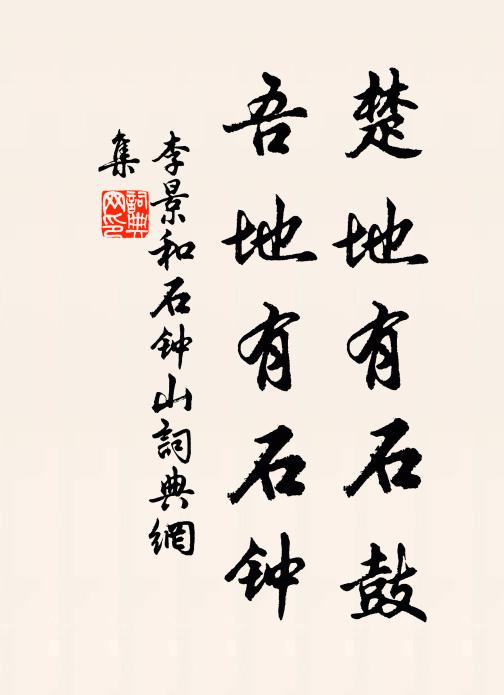 楚地有石鼓
吾地有石钟
李景和石钟山詞典網
集
詞典
网印